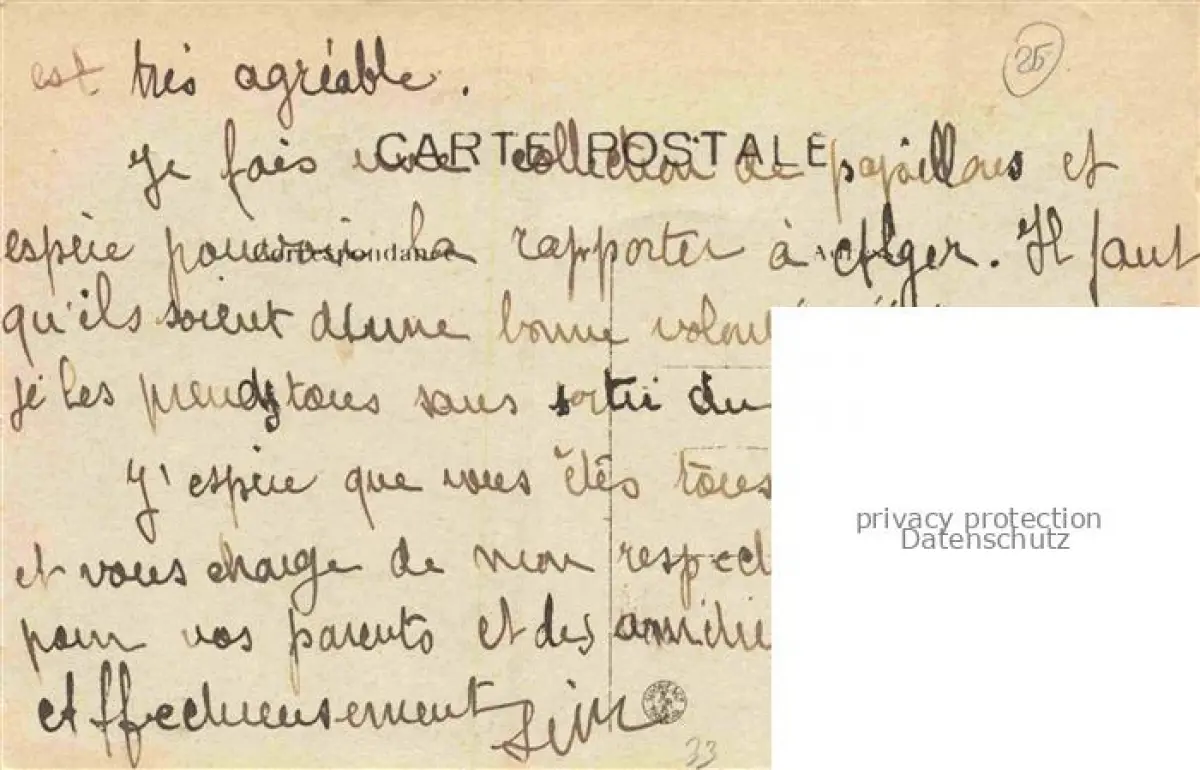 est très agréable.
25
CARTE POSTALE
Je fais une collection de papillons et
Correspondance
espère pouvoir la rapporter à Alger. Il faut
qu'ils soient d'une bonne volon
je les prends tous sans sortir du
J'espère que vous êtes tous
privacy protection
Datenschutz
et vous charge de mon respect
pour vos parents et des
affectueusement
33